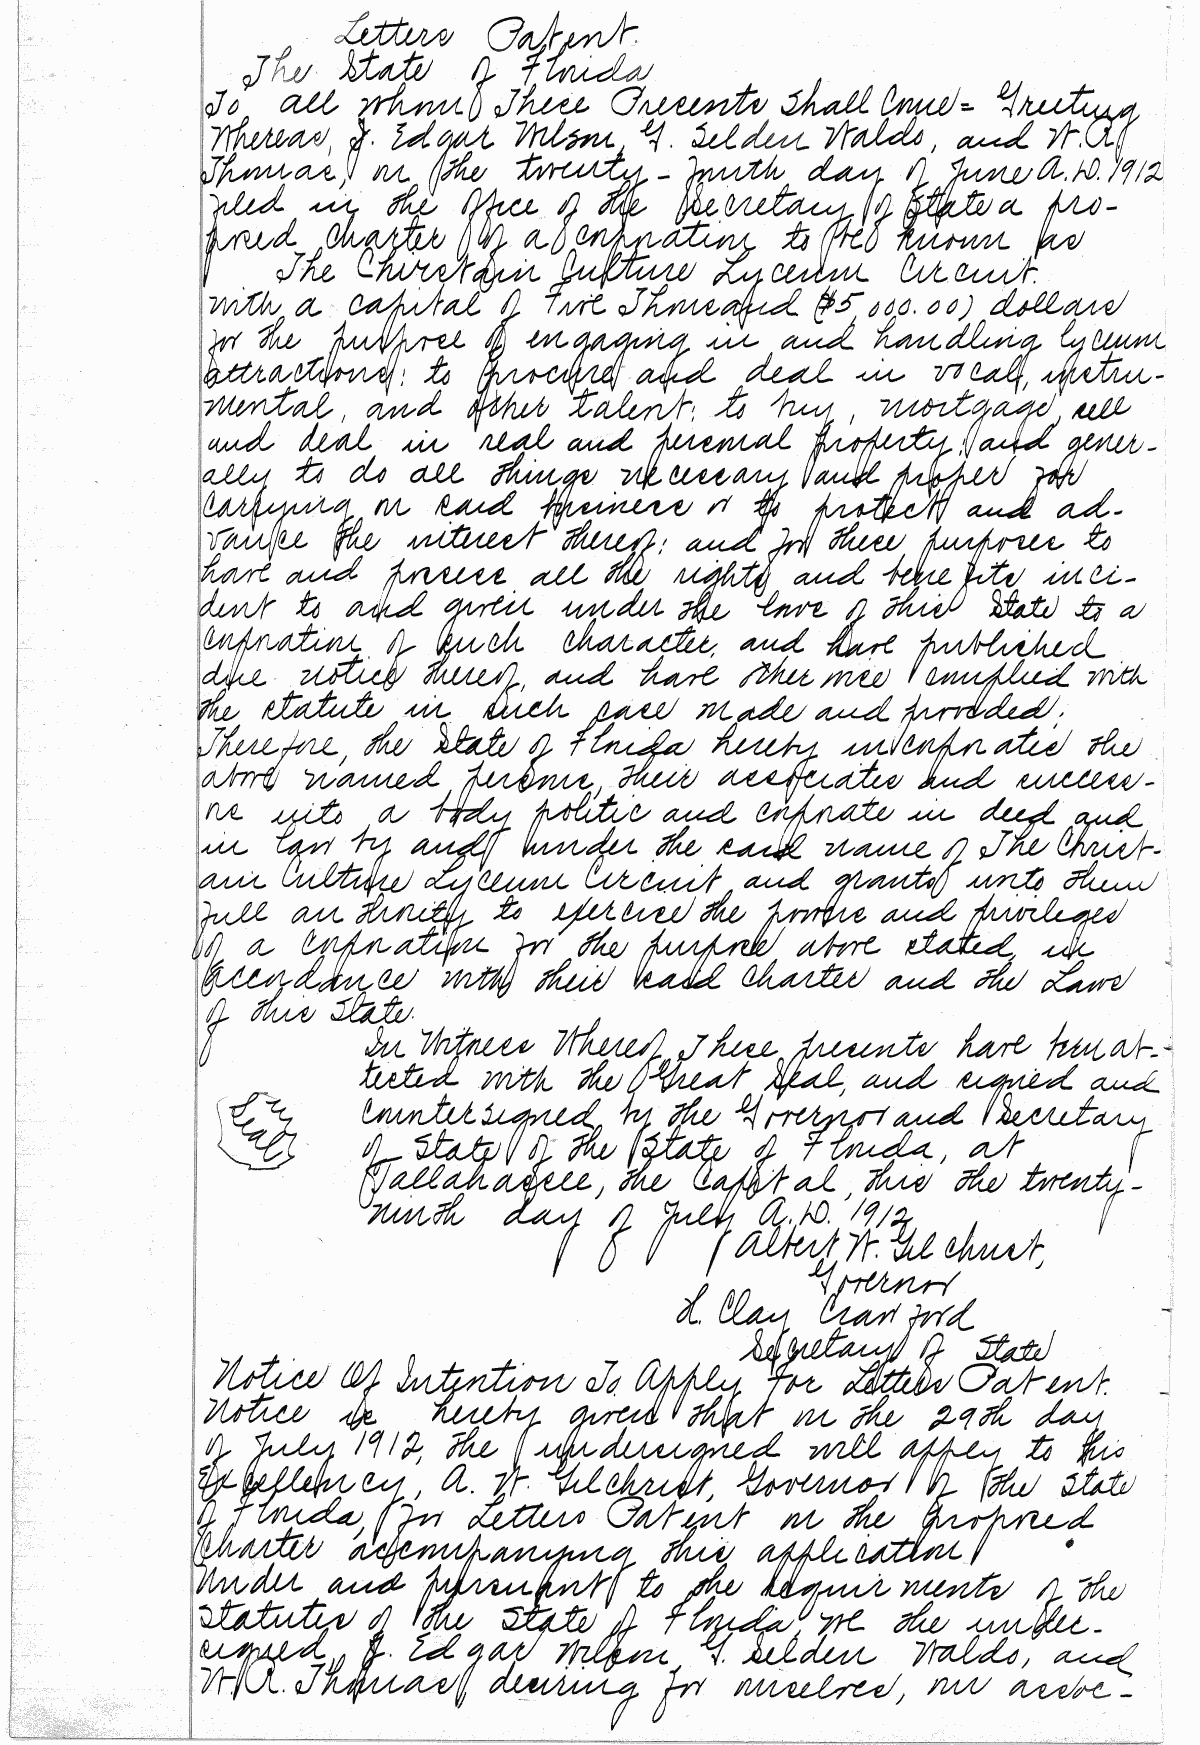 Letters Patent.
The State of Florida
To all whom These Presents Shall Come = Greeting
Whereas, J. Edgar Wilson, G. Selden Waldo, and W. R.
Thomas, on the twenty-fourth day of June A.D. 1912
filed in the office of the Secretary of State a pro-
posed charter of a corporation to be known as
The Chirstain Culture Lyceum Circuit.
with a capital of Five Thousand ($5,000.00) dollars
for the purpose of engaging in and handling lyceum
attractions: to procure and deal in vocal, instru-
mental, and other talent: to buy, mortgage, sell
and deal in real and personal property, and gener-
ally to do all things necessary and proper for
carrying on said business or to protect and ad-
vance the interest thereof: and for these purposes to
have and possess all the rights and benefits inci-
dent to and given under the laws of this State to a
corporation of such character, and have published
due notice thereof, and have otherwise complied with
the statute in such case made and provided;
Therefore, the State of Florida hereby incorporates the
above named persons, their associates and success-
ors into a body politic and corporate in deed and
in law by and under the said name of The Christ-
ain Culture Lyceum Circuit and grants unto them
full authority to exercise the powers and privileges
of a corporation for the purpose above stated, in
accordance with their said charter and the Laws
of this State.
In Witness Whereof, These presents have been at-
tested with the Great Seal, and signed and
countersigned by the Governor and Secretary
Seal
of State of the State of Florida, at
Tallahassee, the Capital, this the twenty-
ninth day of July A.D. 1912
Albert W. Gilchrist,
Governor
H. Clay Crawford
Secretary of State
Notice Of Intention To Apply For Letters Patent.
Notice is hereby given that on the 29th day
of July 1912, the undersigned will apply to his
Excellency, A. W. Gilchrist, Governor of the State
of Florida, for Letters Patent on the proposed
Charter accompanying this application.
Under and pursuant to the requirments of the
statutes of the State of Florida, we the under-
signed, J. Edgar Wilson, G. Selden Waldo, and
W. R. Thomas, desiring for ourselves, our assoc-